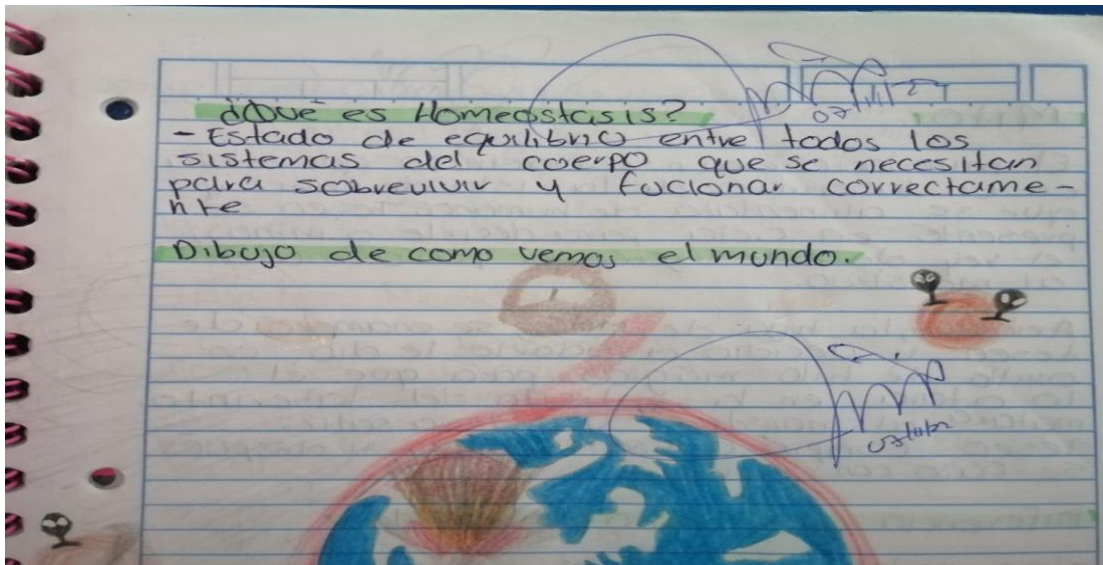 ¿Qué es Homeostasis?
- Estado de equilibrio entre todos los
sistemas del cuerpo que se necesitan
para sobrevivir y fucionar correctame-
nte
Dibujo de como vemos el mundo.